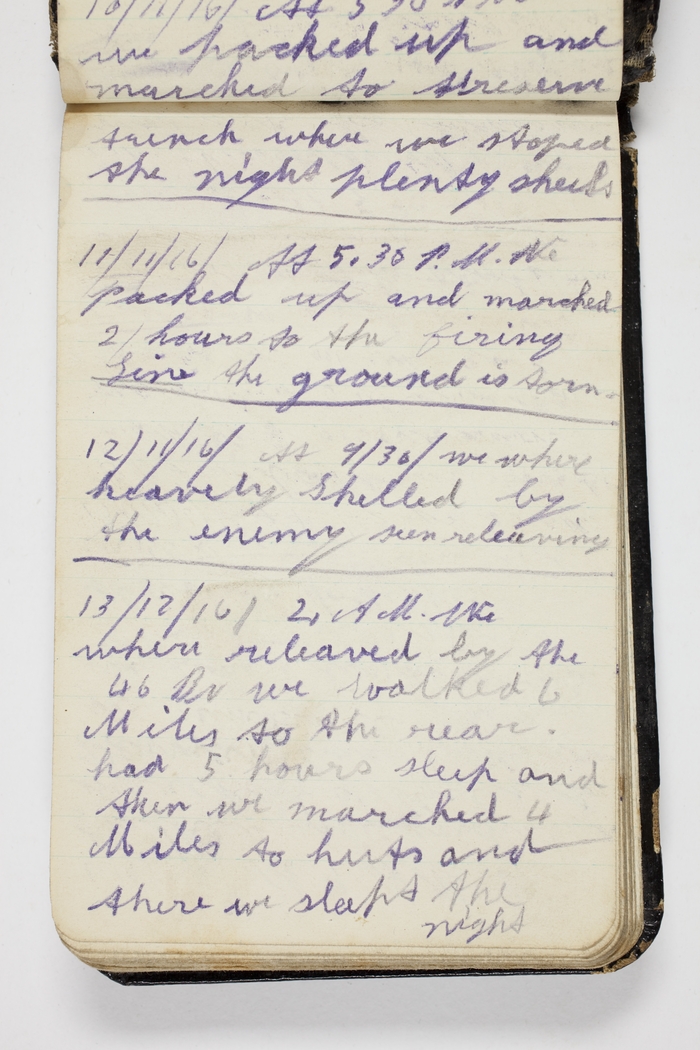 10/11/16/ At 5 30 P.M.
we packed up and
marched to reserve
trench where we stoped
the night plenty shells
11/11/16/ At 5.30 P.M. We
packed up and marched
2/ hours to the firing
Line the ground is torn.
12/11/16/ At 9/30/ we where
heavely Shelled by
the enemy releaving
13/12/16/ 2, A M. We
where releaved by the
46 Bn we walked 6
Miles to the rear.
had 5 hours sleep and
then we marched 4
Miles to huts and
there we slept the
night